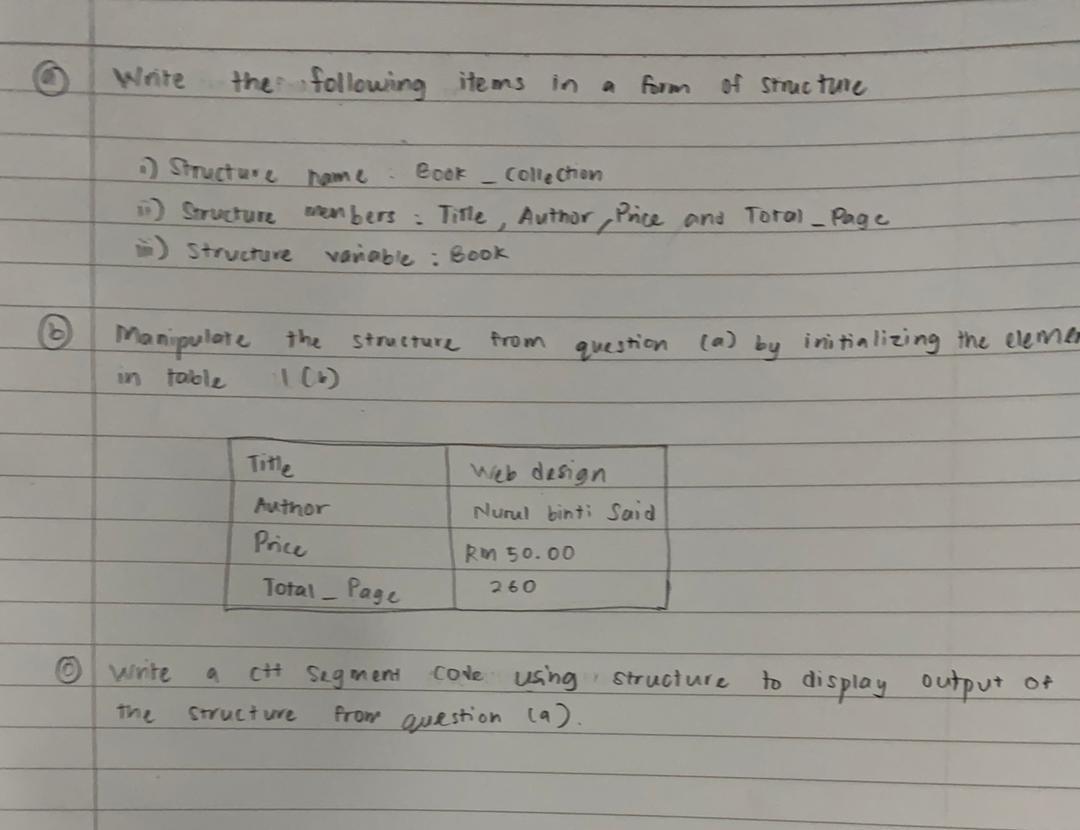 a Write the following items in a form of structure
i) Structure name : Book _ Collection
ii) Structure members : Title , Author , Price and Total _ Page
iii) Structure variable : Book
b Manipulate the structure from question (a) by initializing the
in table 1 (b)
Title Web design
Author Nurul binti Said
Price RM 50.00
Total _ Page 260
c Write a C++ segment code using structure to display output of
the structure from question (a).